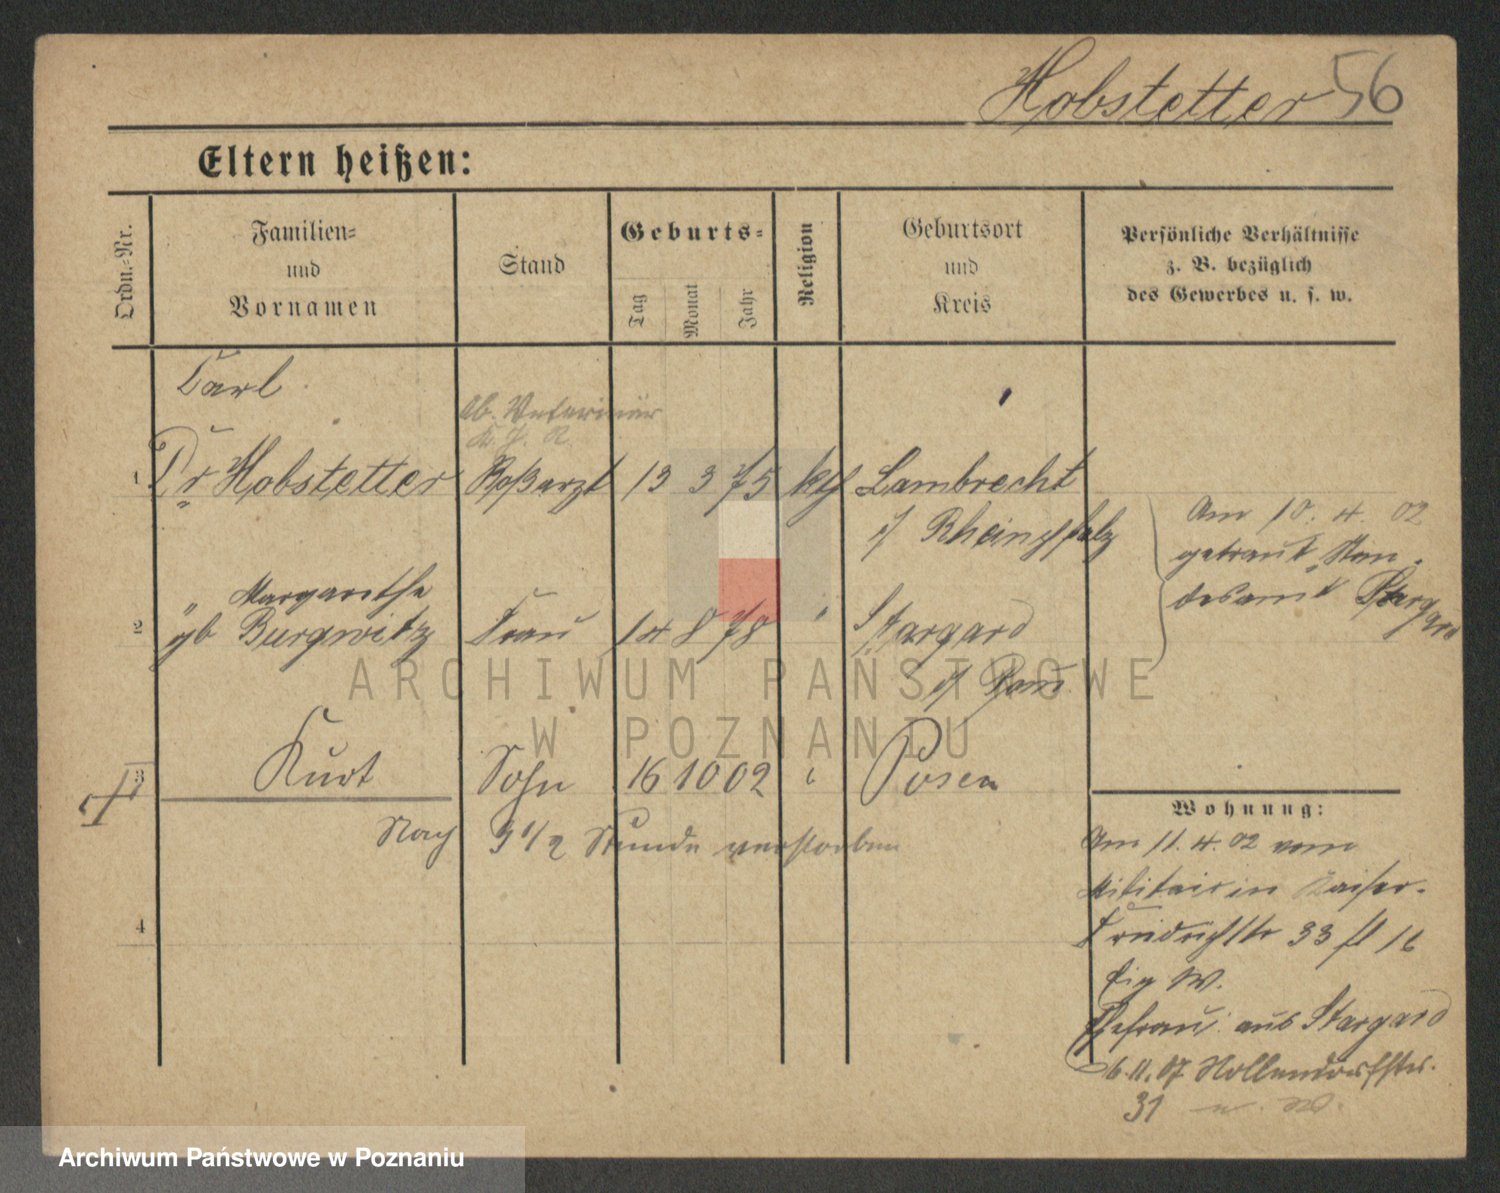 Hobstetter 56
Eltern heißen:
Ordn.=Nr.
Familien= und Vornamen
Stand
Geburts=
Tag
Monat
Jahr
Religion
Geburtsort und Kreis
Persönliche Verhältnisse
z. B. bezüglich
des Gewerbes u. s. w.
Carl
Ob. Veterinär
1 Dr Hobstetter Roßarzt 13 3 75 kth Lambrecht
i/ Rheinpfalz
Am 10. 4. 02
getraut Stan-
desamt Stargard
" Margarethe
2 gb Burgwitz Frau 14 8 78 " Stargard
i/ Pom
3 Kurt Sohn 16 10 02 " Posen
Nach 3 1/2 Stunde verstorben
4
Wohnung:
Am 11. 4. 02 vom
Militair in Kaiser-
Friedrichstr 33
Eig W.
Ehefrau: aus Stargard
6.11.07 Nollendorfstr.
31
ARCHIWUM PAŃSTWOWE
W POZNANIU
Archiwum Państwowe w Poznaniu